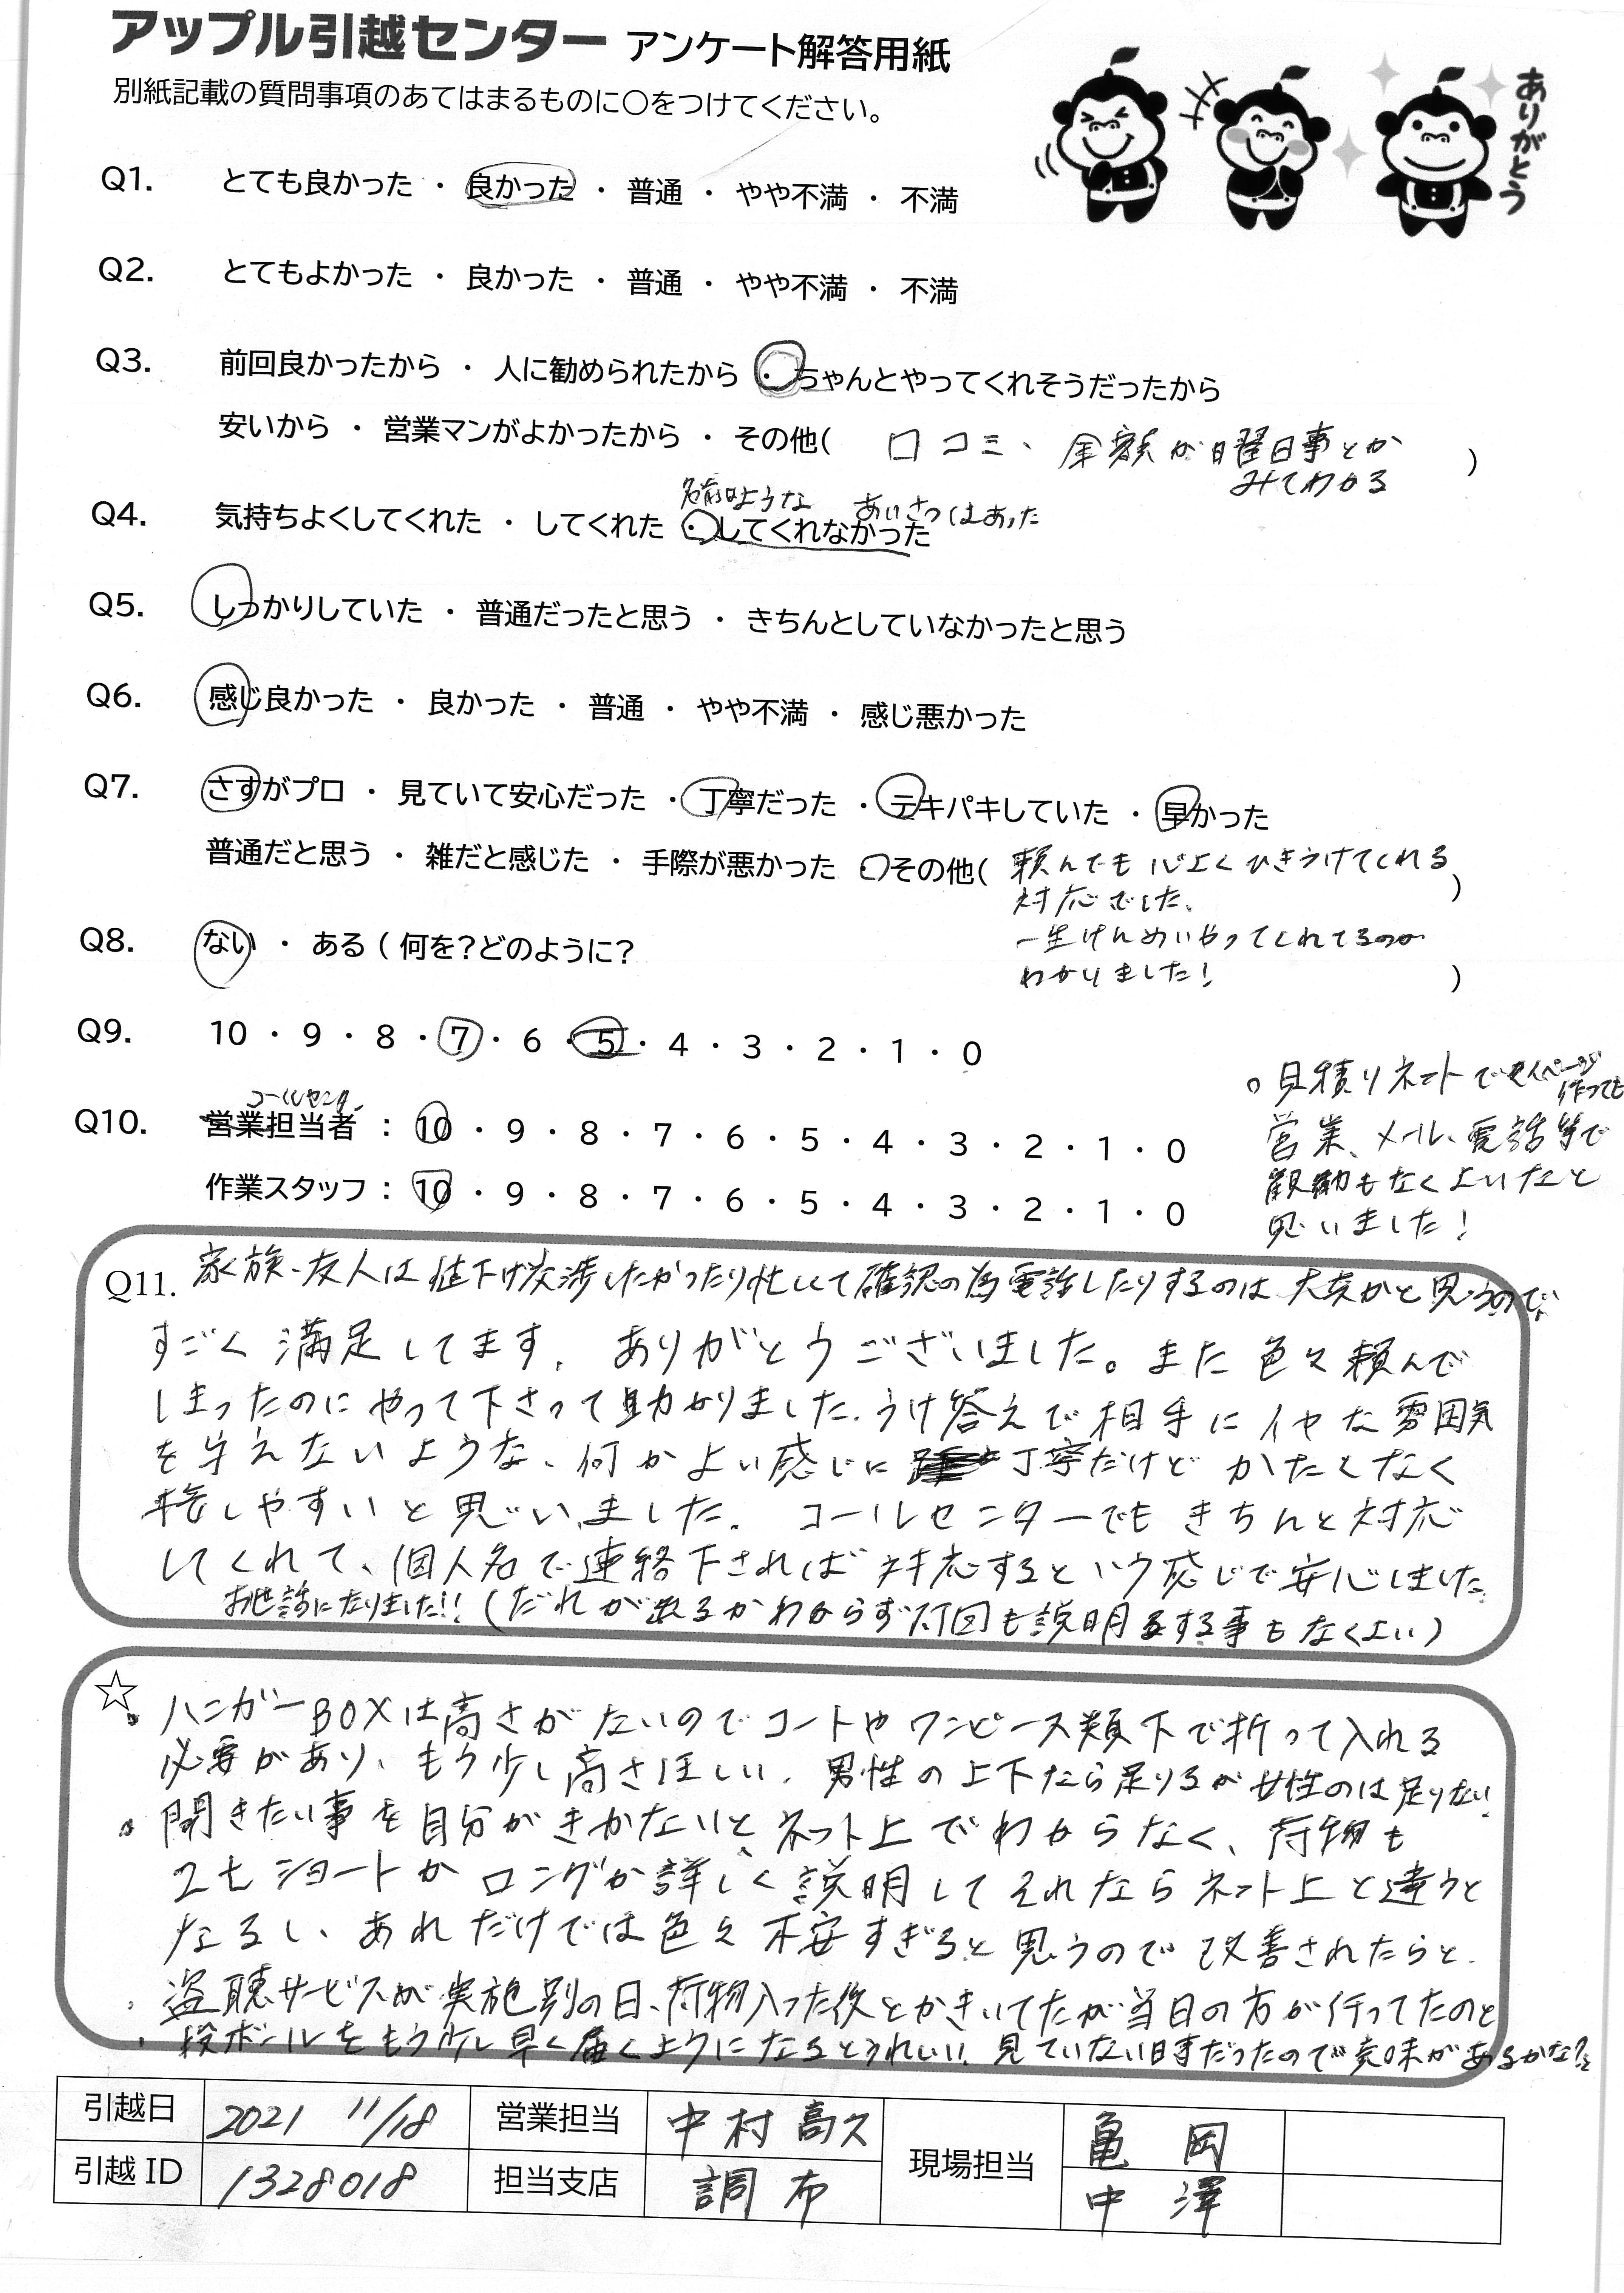 アップル引越センター アンケート解答用紙
別紙記載の質問事項のあてはまるものに〇をつけてください。
ありがとう
Q1. とても良かった ・ 良かった ・ 普通 ・ やや不満 ・ 不満
Q2. とてもよかった ・ 良かった ・ 普通 ・ やや不満 ・ 不満
Q3. 前回良かったから ・ 人に勧められたから ・ ちゃんとやってくれそうだったから
安いから ・ 営業マンがよかったから ・ その他( 口コミ、金額が曜日事とか
みてわかる )
名前はような あいさつはあった
Q4. 気持ちよくしてくれた ・ してくれた ・ してくれなかった
Q5. しっかりしていた ・ 普通だったと思う ・ きちんとしていなかったと思う
Q6. 感じ良かった ・ 良かった ・ 普通 ・ やや不満 ・ 感じ悪かった
Q7. さすがプロ ・ 見ていて安心だった ・ 丁寧だった ・ テキパキしていた ・ 早かった
普通だと思う ・ 雑だと感じた ・ 手際が悪かった ・ その他( 頼んでも心よくひきうけてくれる
対応でした、 )
Q8. ない ・ ある ( 何を?どのように?
一生けんめいやってくれてるのが
わかりました! )
Q9. 10 ・ 9 ・ 8 ・ 7 ・ 6 ・ 5 ・ 4 ・ 3 ・ 2 ・ 1 ・ 0
コールセンター
Q10. 営業担当者 : 10 ・ 9 ・ 8 ・ 7 ・ 6 ・ 5 ・ 4 ・ 3 ・ 2 ・ 1 ・ 0
作業スタッフ : 10 ・ 9 ・ 8 ・ 7 ・ 6 ・ 5 ・ 4 ・ 3 ・ 2 ・ 1 ・ 0
。見積りネットでマイページ
作っても
営業、メール、電話等で
勧もなくよいなと
思いました!
Q11. 家族・友人は値下げ交渉したかったり忙しくて確認の為電話したりするのは大変かと思うので
すごく満足してます。ありがとうございました。また色々頼んで
しまったのにやって下さって助かりました。うけ答えで相手にイヤな雰囲気
を与えないような、何かよい感じに 丁寧だけどかたくなく
接しやすいと思いました。コールセンターでもきちんと対応
してくれて、個人名で連絡下されば対応するという感じで安心しました
お世話になりました!! (だれが出るかわからず何回も説明をする事もなくよい)
☆
・ハンガーBOXは高さがたいのでコートやワンピース類下で折って入れる
必要があり、もう少し高さほしい。男性の上下なら足りるが女性のは足りない。
・聞きたい事を自分がきかないと、ネット上でわからなく、荷物も
2tショートかロングか詳しく説明してそれならネット上と違うと
なるし、あれだけでは色々不安すぎると思うので改善されたらと。
・盗聴サービスが実施別の日、荷物入った後とかきいてたが当日の方が行ってたのと
・段ボールをもう少し早く届くようになるとうれしい。見ていない時だったので意味があるかな?と
引越日 2021 11/18 営業担当 中村高久 現場担当 亀岡
引越ID 1328018 担当支店 調布 中澤